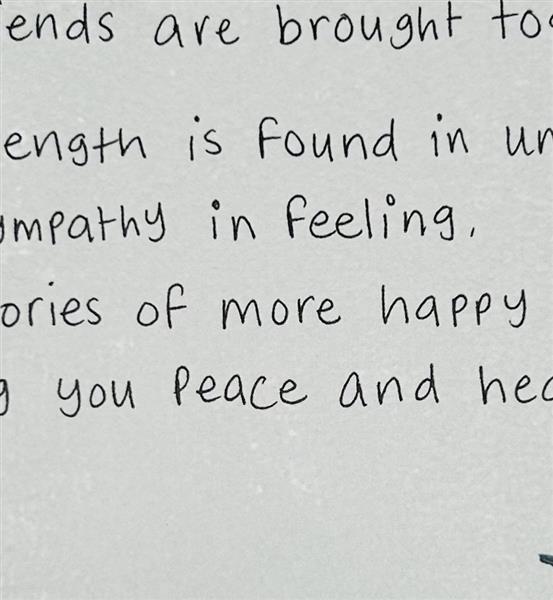 ends are brought to
ength is found in un
ympathy in feeling,
ories of more happy
g you peace and hea